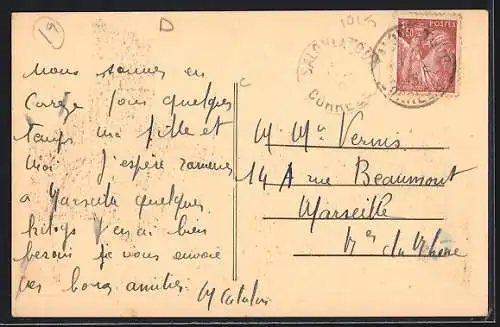 19
D
1015
SALON LA TOUR
CORRÈZE
POSTES
Nous sommes en
Coreze pour quelques
temps ma fille et
Moi J'espère ramener
a Marseille quelques
kilogs j'en ai bien
besoin je vous envoie
ces bons amitiés
M M
14 A rue Beaumont
Marseille
du Rhône